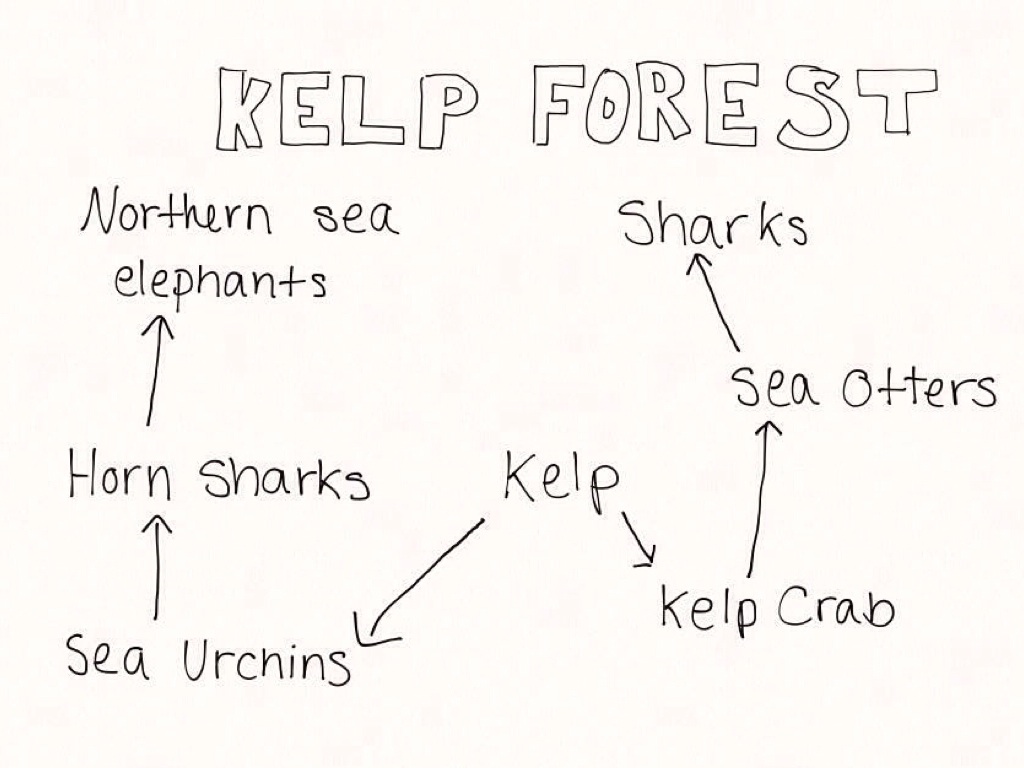 KELP FOREST
Northern sea
elephants
Sharks
Sea Otters
Horn Sharks
Kelp
Kelp Crab
Sea Urchins